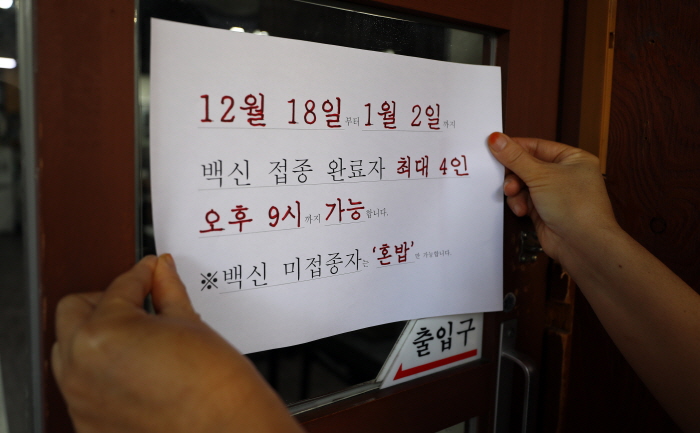 12월 18일부터 1월 2일까지
백신 접종 완료자 최대 4인
오후 9시까지 가능합니다.
※백신 미접종자는 '혼밥'만 가능합니다.
출입구